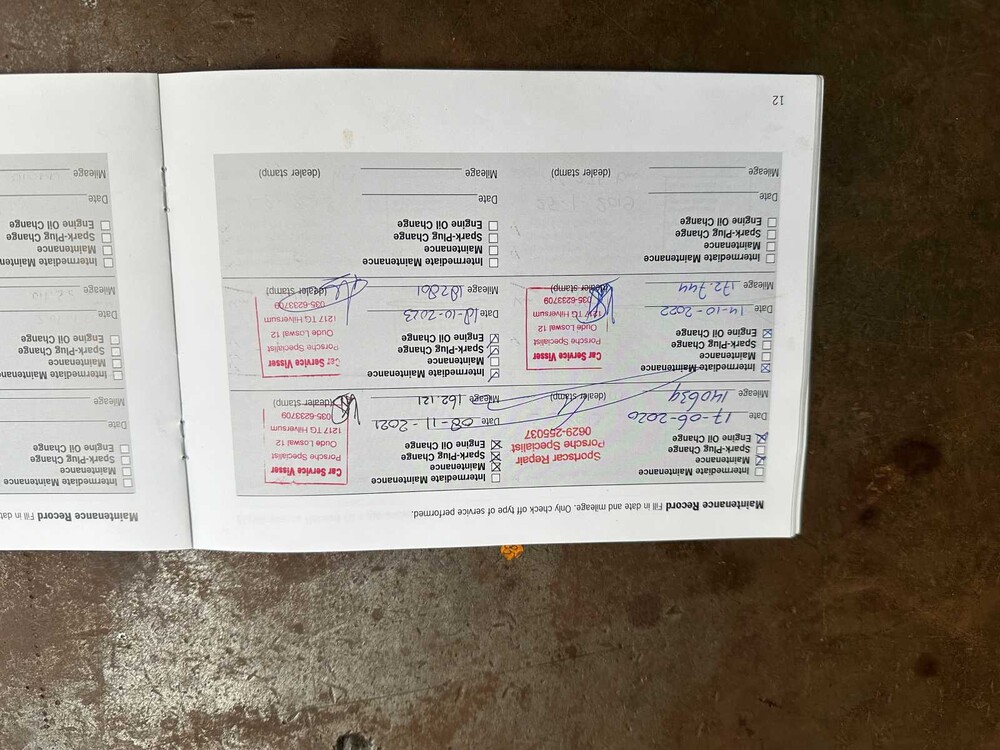 Maintenance Record Fill in date and mileage. Only check off type of service performed.
Intermediate Maintenance
Maintenance
Spark-Plug Change
Engine Oil Change
Date 17-06-2020
Mileage 140639
Sportscar Repair
Porsche Specialist
0629-255037
(dealer stamp)
Intermediate Maintenance
Maintenance
Spark-Plug Change
Engine Oil Change
Date 08-11-2021
Mileage 162.121
Car Service Visser
Porsche Specialist
Oude Loswal 12
1217 TG Hilversum
035-6233709
(dealer stamp)
Intermediate Maintenance
Maintenance
Spark-Plug Change
Engine Oil Change
Date 14-10-2022
Mileage 172.744
Car Service Visser
Porsche Specialist
Oude Loswal 12
1217 TG Hilversum
035-6233709
(dealer stamp)
Intermediate Maintenance
Maintenance
Spark-Plug Change
Engine Oil Change
Date 18-10-2023
Mileage 182861
Car Service Visser
Porsche Specialist
Oude Loswal 12
1217 TG Hilversum
035-6233709
(dealer stamp)
Intermediate Maintenance
Maintenance
Spark-Plug Change
Engine Oil Change
Date
Mileage
(dealer stamp)
Intermediate Maintenance
Maintenance
Spark-Plug Change
Engine Oil Change
Date
Mileage
(dealer stamp)
12
Maintenance Record Fill in dat
Intermediate Maintenance
Maintenance
Spark-Plug Change
Engine Oil Change
Date
Mileage
Intermediate Maintenance
Maintenance
Spark-Plug Change
Engine Oil Change
Date
Mileage
Intermediate Mainten
Maintenance
Spark-Plug Change
Engine Oil Change
Date
Mileage